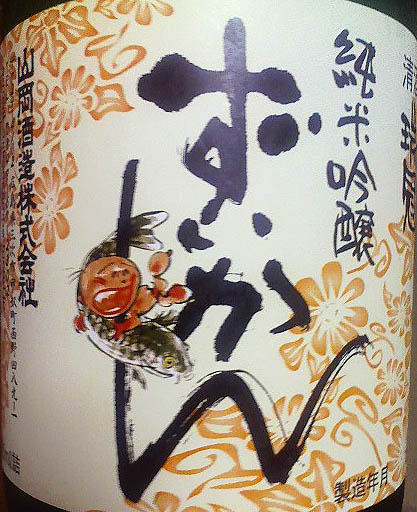 純米吟醸
ずいかん
山岡酒造株式会社
製造年月